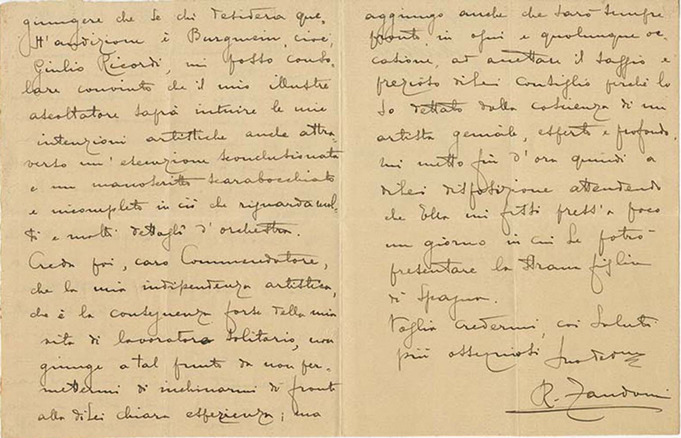 giungere che se chi desidera que-
st'audizione è Burgmein, cioè,
Giulio Ricordi, mi posso conso-
lare convinto che il mio illustre
ascoltatore saprà intuire le mie
intenzioni artistiche anche attra-
verso un'esecuzione sconclusionata
e un manoscritto scarabocchiato
e incompleto in ciò che riguarda mol-
ti e molti dettagli d'orchestra.
Creda poi, caro Commendatore,
che la mia indipendenza artistica,
che è la conseguenza forse della mia
vita di lavoratore solitario, non
giunge a tal punto da non per-
mettermi di inchinarmi di fronte
alla di lei chiara esperienza; ma
aggiungo anche che sarò sempre
pronto, in ogni e qualunque oc-
casione, ad accettare il saggio e
prezioso di lei consiglio perché lo
so dettato dalla coscienza di un
artista geniale, esperto e profondo.
mi metto fin d'ora quindi a
di lei disposizione attendendo
che Ella mi fissi press'a poco
un giorno in cui Le potrò
presentare la
di Spagna.
Voglia credermi, coi saluti
più ossequiosi
R. Zandonai